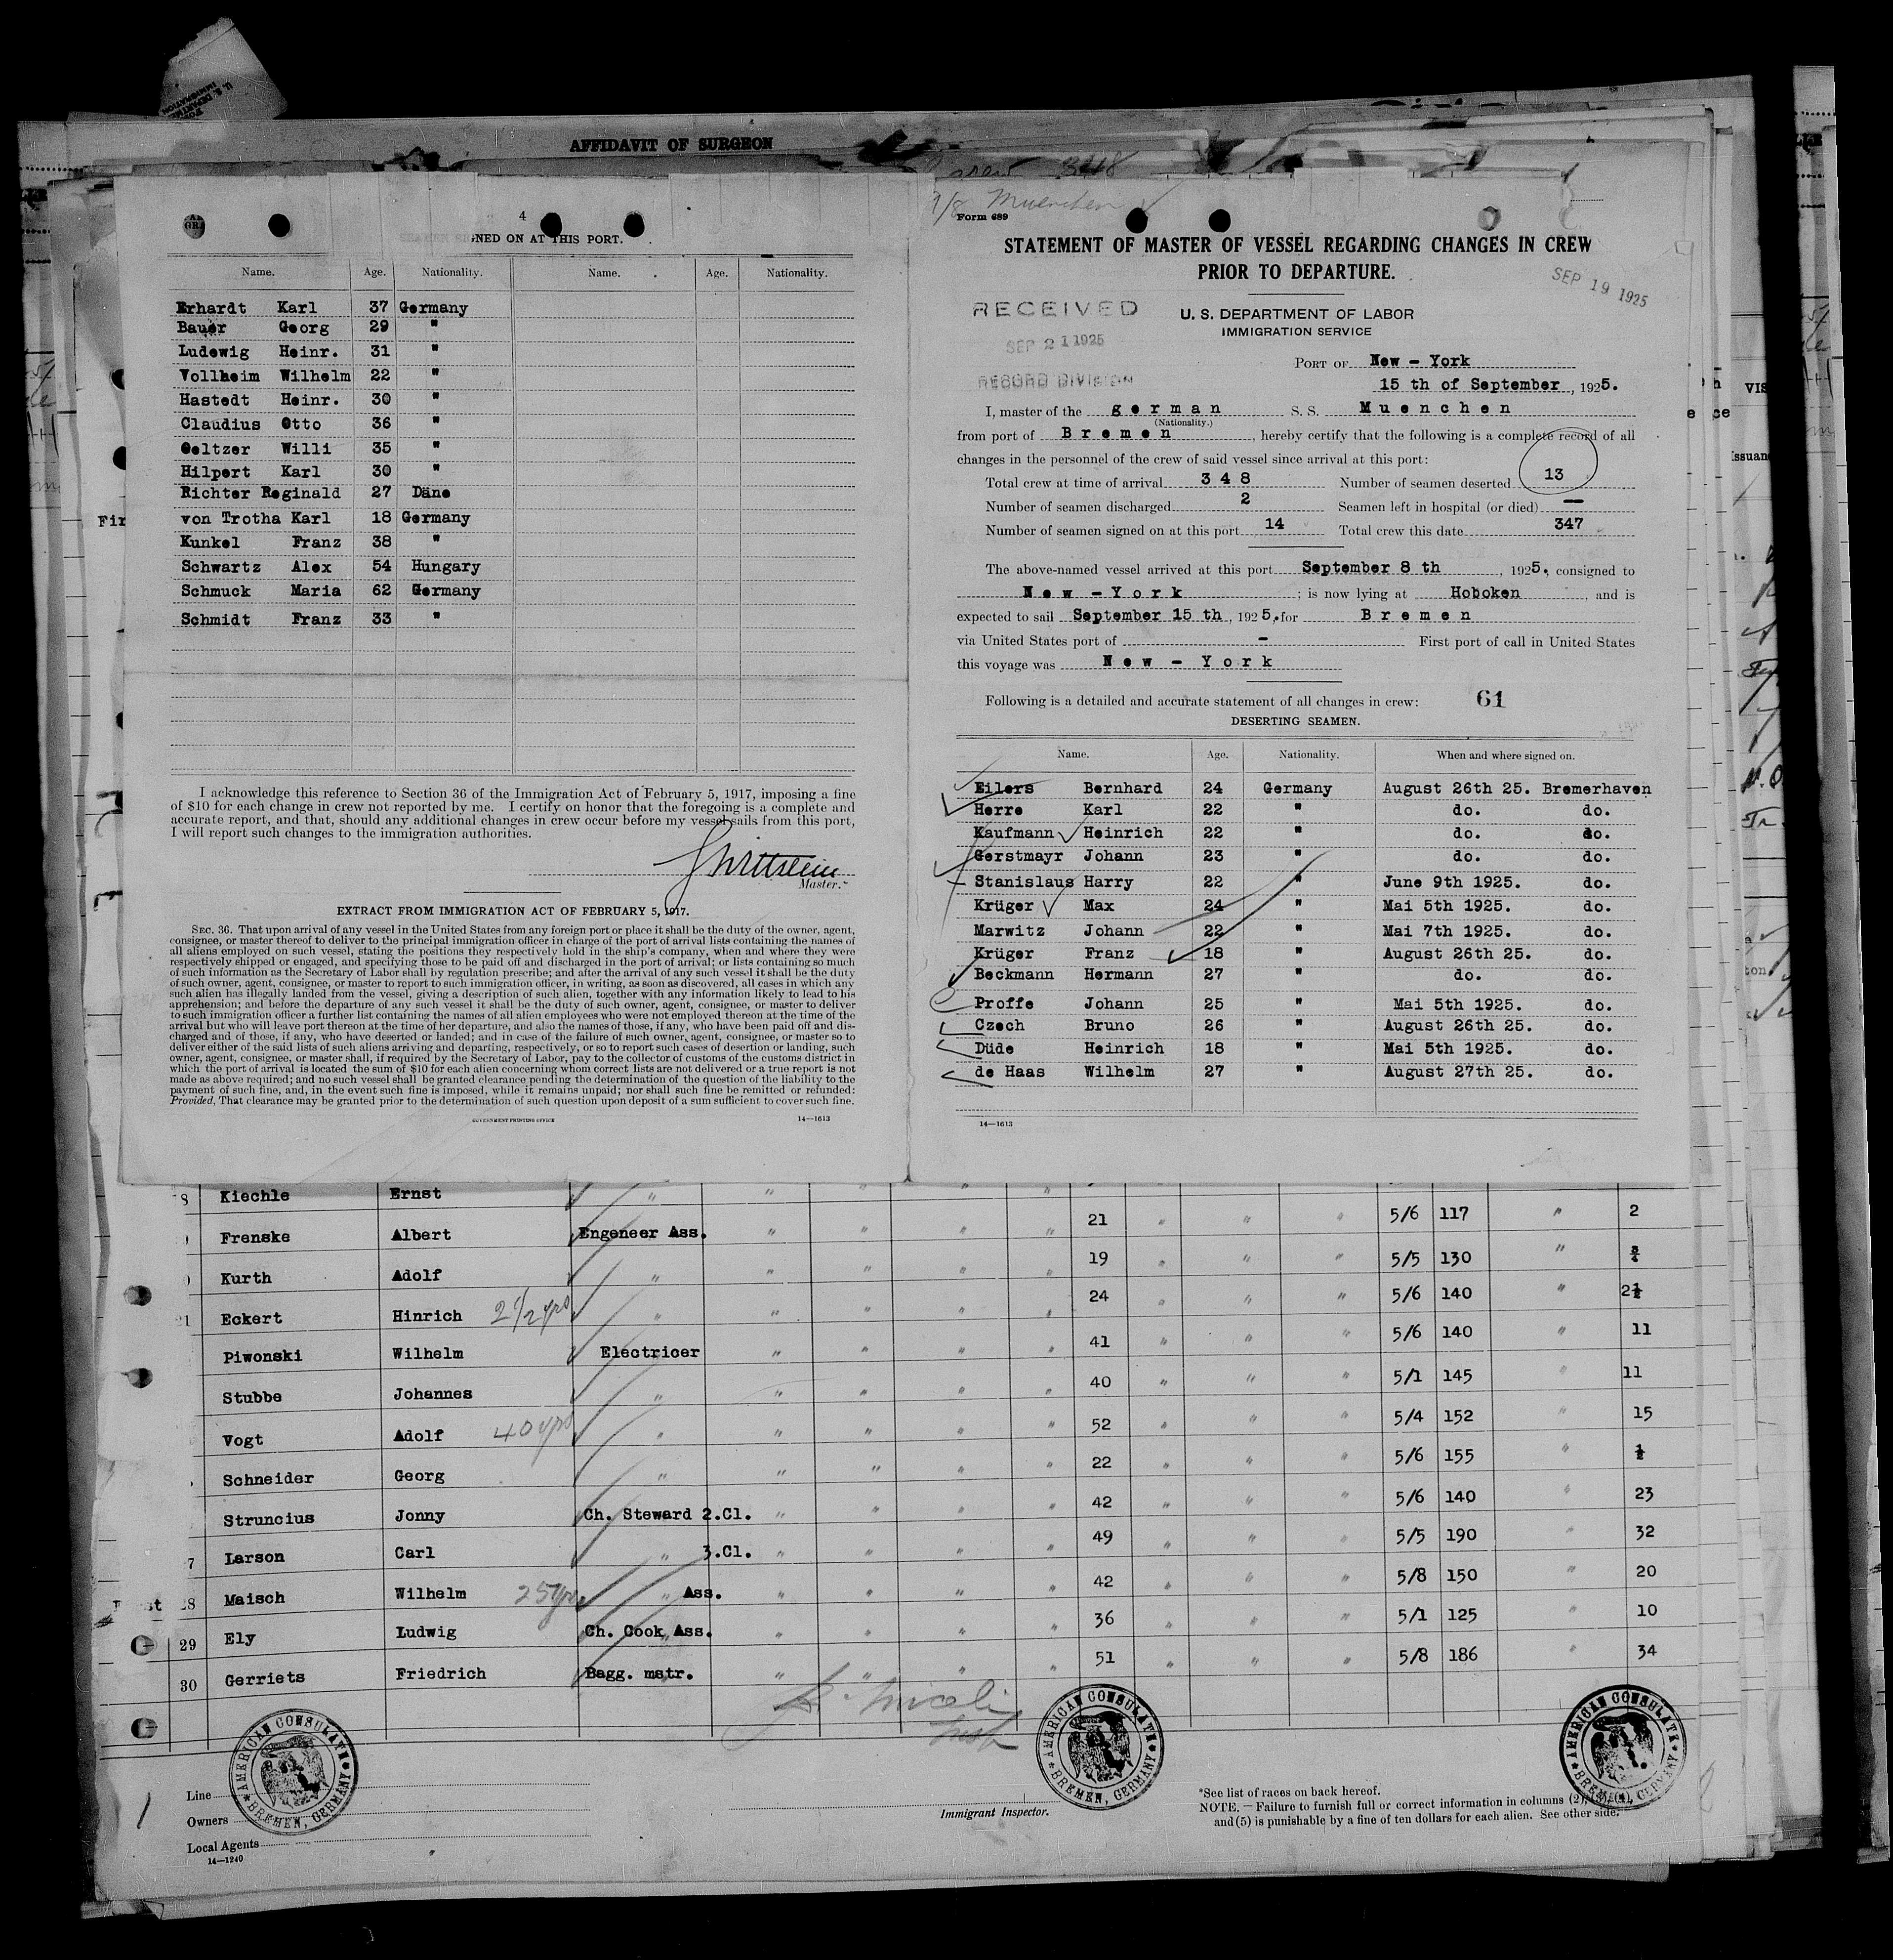 AFFIDAVIT OF SURGEON
348
4
NED ON AT THIS PORT.
Name. Age. Nationality. Name. Age. Nationality.
Erhardt Karl 37 Germany
Bauer Georg 29 "
Ludewig Heinr. 31 "
Vollheim Wilhelm 22 "
Hastedt Heinr. 30 "
Claudius Otto 36 "
Oeltzer Willi 35 "
Hilpert Karl 30 "
Richter Reginald 27 Däne
von Trotha Karl 18 Germany
Kunkel Franz 38 "
Schwartz Alex 54 Hungary
Schmuck Maria 62 Germany
Schmidt Franz 33 "
I acknowledge this reference to Section 36 of the Immigration Act of February 5, 1917, imposing a fine
of $10 for each change in crew not reported by me. I certify on honor that the foregoing is a complete and
accurate report, and that, should any additional changes in crew occur before my vessel sails from this port,
I will report such changes to the immigration authorities.
Master.
EXTRACT FROM IMMIGRATION ACT OF FEBRUARY 5, 1917.
SEC. 36. That upon arrival of any vessel in the United States from any foreign port or place it shall be the duty of the owner, agent,
consignee, or master thereof to deliver to the principal immigration officer in charge of the port of arrival lists containing the names of
all aliens employed on such vessel, stating the positions they respectively hold in the ship's company, when and where they were
respectively shipped or engaged, and specifying those to be paid off and discharged in the port of arrival; or lists containing so much
of such information as the Secretary of Labor shall by regulation prescribe; and after the arrival of any such vessel it shall be the duty
of such owner, agent, consignee, or master to report to such immigration officer, in writing, as soon as discovered, all cases in which any
such alien has illegally landed from the vessel, giving a description of such alien, together with any information likely to lead to his
apprehension; and before the departure of any such vessel it shall be the duty of such owner, agent, consignee, or master to deliver
to such immigration officer a further list containing the names of all alien employees who were not employed thereon at the time of the
arrival but who will leave port thereon at the time of her departure, and also the names of those, if any, who have been paid off and dis-
charged and of those, if any, who have deserted or landed; and in case of the failure of such owner, agent, consignee, or master so to
deliver either of the said lists of such aliens arriving and departing, respectively, or so to report such cases of desertion or landing, such
owner, agent, consignee, or master shall, if required by the Secretary of Labor, pay to the collector of customs of the customs district in
which the port of arrival is located the sum of $10 for each alien concerning whom correct lists are not delivered or a true report is not
made as above required; and no such vessel shall be granted clearance pending the determination of the question of the liability to the
payment of such fine, and, in the event such fine is imposed, while it remains unpaid; nor shall such fine be remitted or refunded:
Provided, That clearance may be granted prior to the determination of such question upon deposit of a sum sufficient to cover such fine.
GOVERNMENT PRINTING OFFICE 14—1613
9/8 Muenchen
Form 689
STATEMENT OF MASTER OF VESSEL REGARDING CHANGES IN CREW
PRIOR TO DEPARTURE.
SEP 19 1925
RECEIVED
SEP 21 1925
RECORD DIVISION
U. S. DEPARTMENT OF LABOR
IMMIGRATION SERVICE
PORT OF New - York
15 th of September, 1925.
I, master of the german S. S. Muenchen
(Nationality.)
from port of Bremen, hereby certify that the following is a complete record of all
changes in the personnel of the crew of said vessel since arrival at this port:
Total crew at time of arrival 348 Number of seamen deserted 13
Number of seamen discharged 2 Seamen left in hospital (or died) —
Number of seamen signed on at this port 14 Total crew this date 347
The above-named vessel arrived at this port September 8 th, 1925., consigned to
New - York; is now lying at Hoboken, and is
expected to sail September 15 th, 1925. for Bremen
via United States port of - First port of call in United States
this voyage was New - York
Following is a detailed and accurate statement of all changes in crew: 61
DESERTING SEAMEN.
Name. Age. Nationality. When and where signed on.
Eilers Bernhard 24 Germany August 26th 25. Bremerhaven
Herre Karl 22 " do. do.
Kaufmann Heinrich 22 " do. do.
Gerstmayr Johann 23 " do. do.
Stanislaus Harry 22 " June 9th 1925. do.
Krüger Max 24 " Mai 5th 1925. do.
Marwitz Johann 22 " Mai 7th 1925. do.
Krüger Franz 18 " August 26th 25. do.
Beckmann Hermann 27 " do. do.
Proffe Johann 25 " Mai 5th 1925. do.
Czech Bruno 26 " August 26th 25. do.
Düde Heinrich 18 " Mai 5th 1925. do.
de Haas Wilhelm 27 " August 27th 25. do.
14—1613
8 Kiechle Ernst " " " " "
Frenske Albert Engeneer Ass. " " " " 21 " " " 5/6 117 " 2
Kurth Adolf " " " " " 19 " " " 5/5 130 " 3/4
21 Eckert Hinrich 2 1/2 yrs " " " " " 24 " " " 5/6 140 " 2½
Piwonski Wilhelm Electricer " " " " 41 " " " 5/6 140 " 11
Stubbe Johannes " " " " " 40 " " " 5/1 145 " 11
Vogt Adolf 40 yrs " " " " " 52 " " " 5/4 152 " 15
Schneider Georg " " " " " 22 " " " 5/6 155 " ½
Struncius Jonny Ch. Steward 2.Cl. " " " " 42 " " " 5/6 140 " 23
7 Larson Carl " 3.Cl. " " " " 49 " " " 5/5 190 " 32
28 Maisch Wilhelm 25 yrs " Ass. " " " " 42 " " " 5/8 150 " 20
29 Ely Ludwig Ch. Cook Ass. " " " " 36 " " " 5/1 125 " 10
30 Gerriets Friedrich Bagg. mstr. " " " " 51 " " " 5/8 186 " 34
AMERICAN CONSULATE BREMEN, GERMANY
AMERICAN CONSULATE BREMEN, GERMANY
AMERICAN CONSULATE BREMEN, GERMANY
Line
Owners
Local Agents
14—1240
Immigrant Inspector.
*See list of races on back hereof.
NOTE.—Failure to furnish full or correct information in columns (2),
and (5) is punishable by a fine of ten dollars for each alien. See other side.